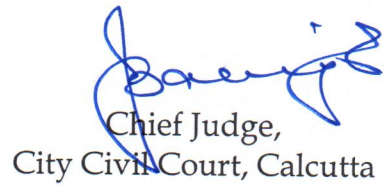 Chief Judge,
City Civil Court, Calcutta